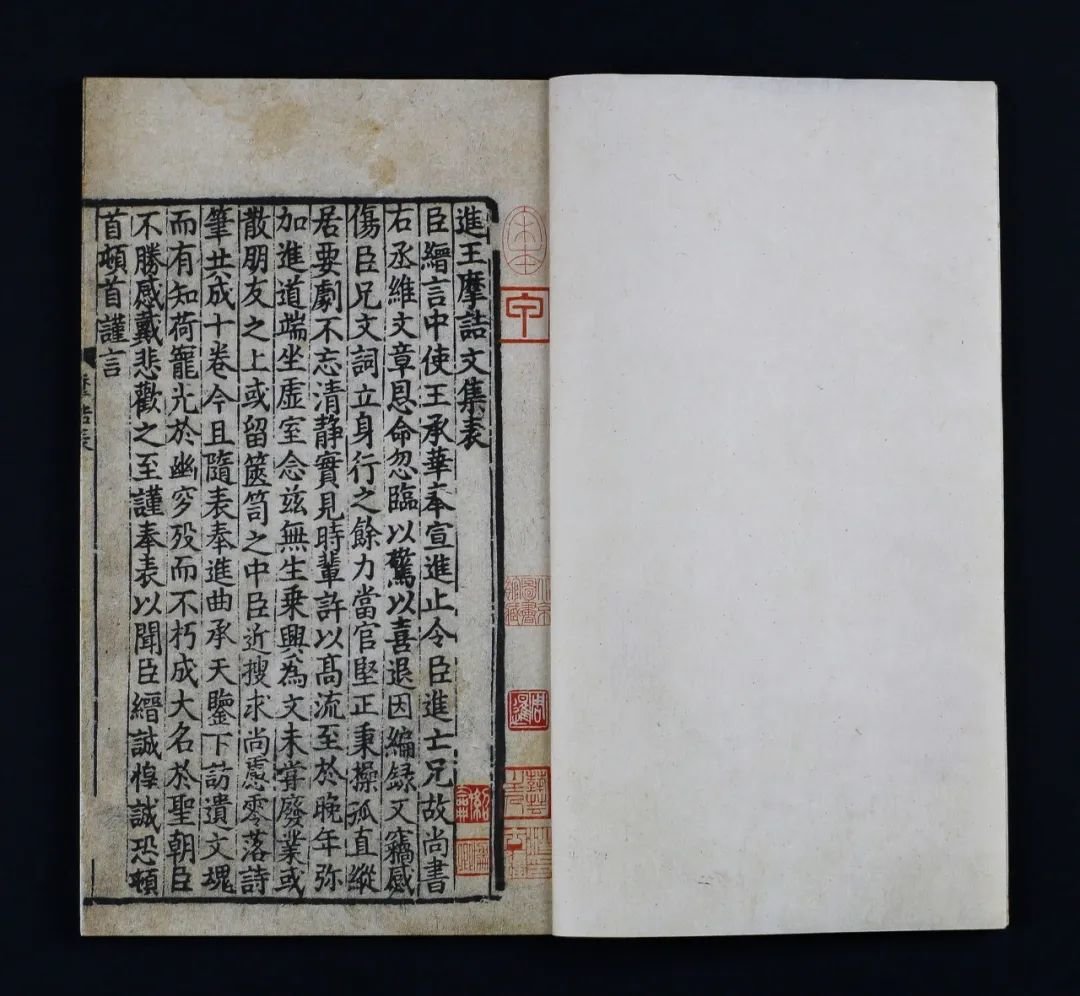 進王摩詰文集表
臣縉言中使王承華奉宣進止令臣進亡兄故尚書
右丞維文章恩命忽臨以驚以喜退因編録又竊感
傷臣兄文詞立身行之餘力當官堅正秉操孤直縱
居要劇不忘清静實見時輩許以髙流至於晚年弥
加進道端坐虚室念兹無生乗興為文未甞廢業或
散朋友之上或留篋笥之中臣近搜求尚慮零落詩
筆共成十卷今且隨表奉進曲承天鑒下訪遺文魂
而有知荷寵光於幽穸殁而不朽成大名於聖朝臣
不勝感戴悲歡之至謹奉表以聞臣縉誠惶誠恐頓
首頓首謹言
宋本
周暹